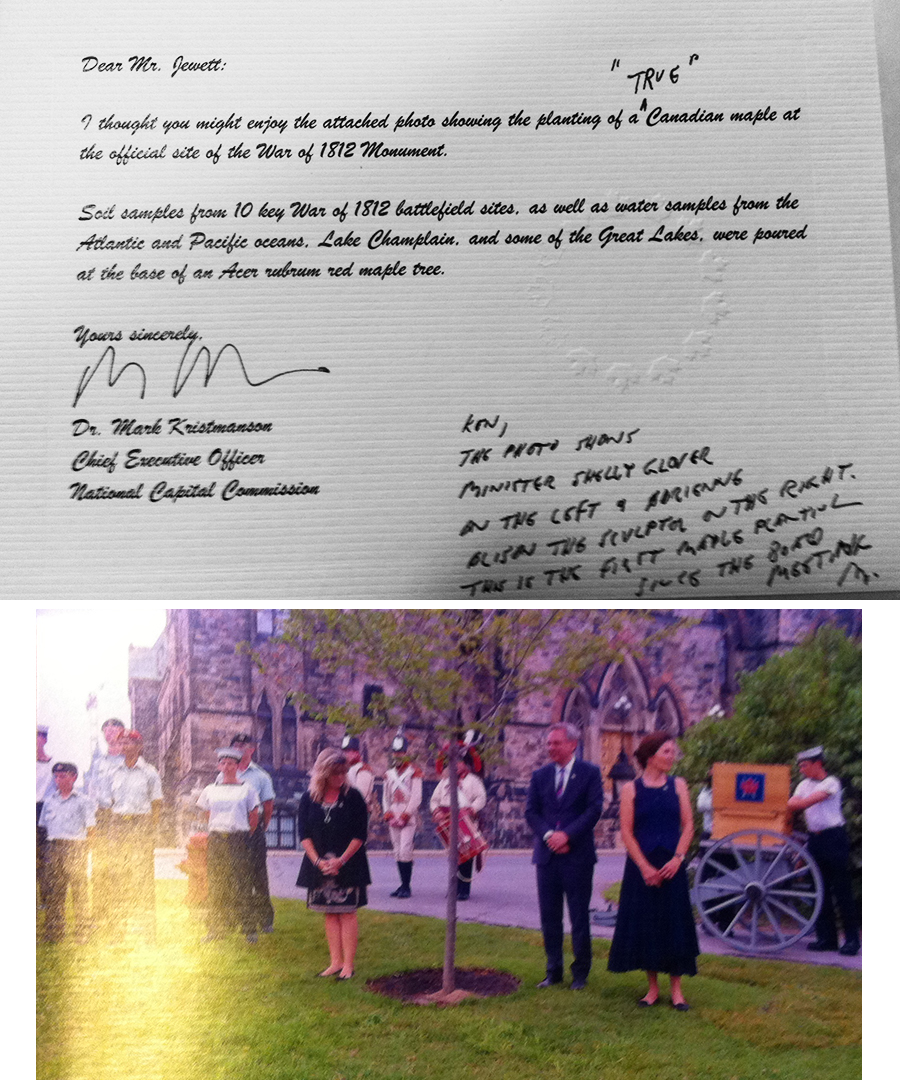 Dear Mr. Jewett:
"TRUE"
I thought you might enjoy the attached photo showing the planting of a ^ Canadian maple at
the official site of the War of 1812 Monument.
Soil samples from 10 key War of 1812 battlefield sites, as well as water samples from the
Atlantic and Pacific oceans, Lake Champlain, and some of the Great Lakes, were poured
at the base of an Acer rubrum red maple tree.
Yours sincerely,
Dr. Mark Kristmanson
Chief Executive Officer
National Capital Commission
KEN,
THE PHOTO SHOWS
MINISTER SHELLY GLOVER
ON THE LEFT & ADRIENNE
ALISON THE SCULPTOR ON THE RIGHT.
THIS IS THE FIRST MAPLE PLANTING
SINCE THE BOARD
MEETING
M.